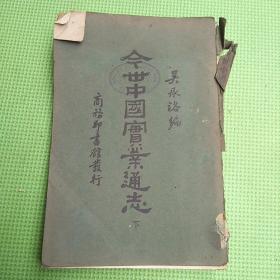 吳承洛編
今世中國實業通志
下
商務印書館發行